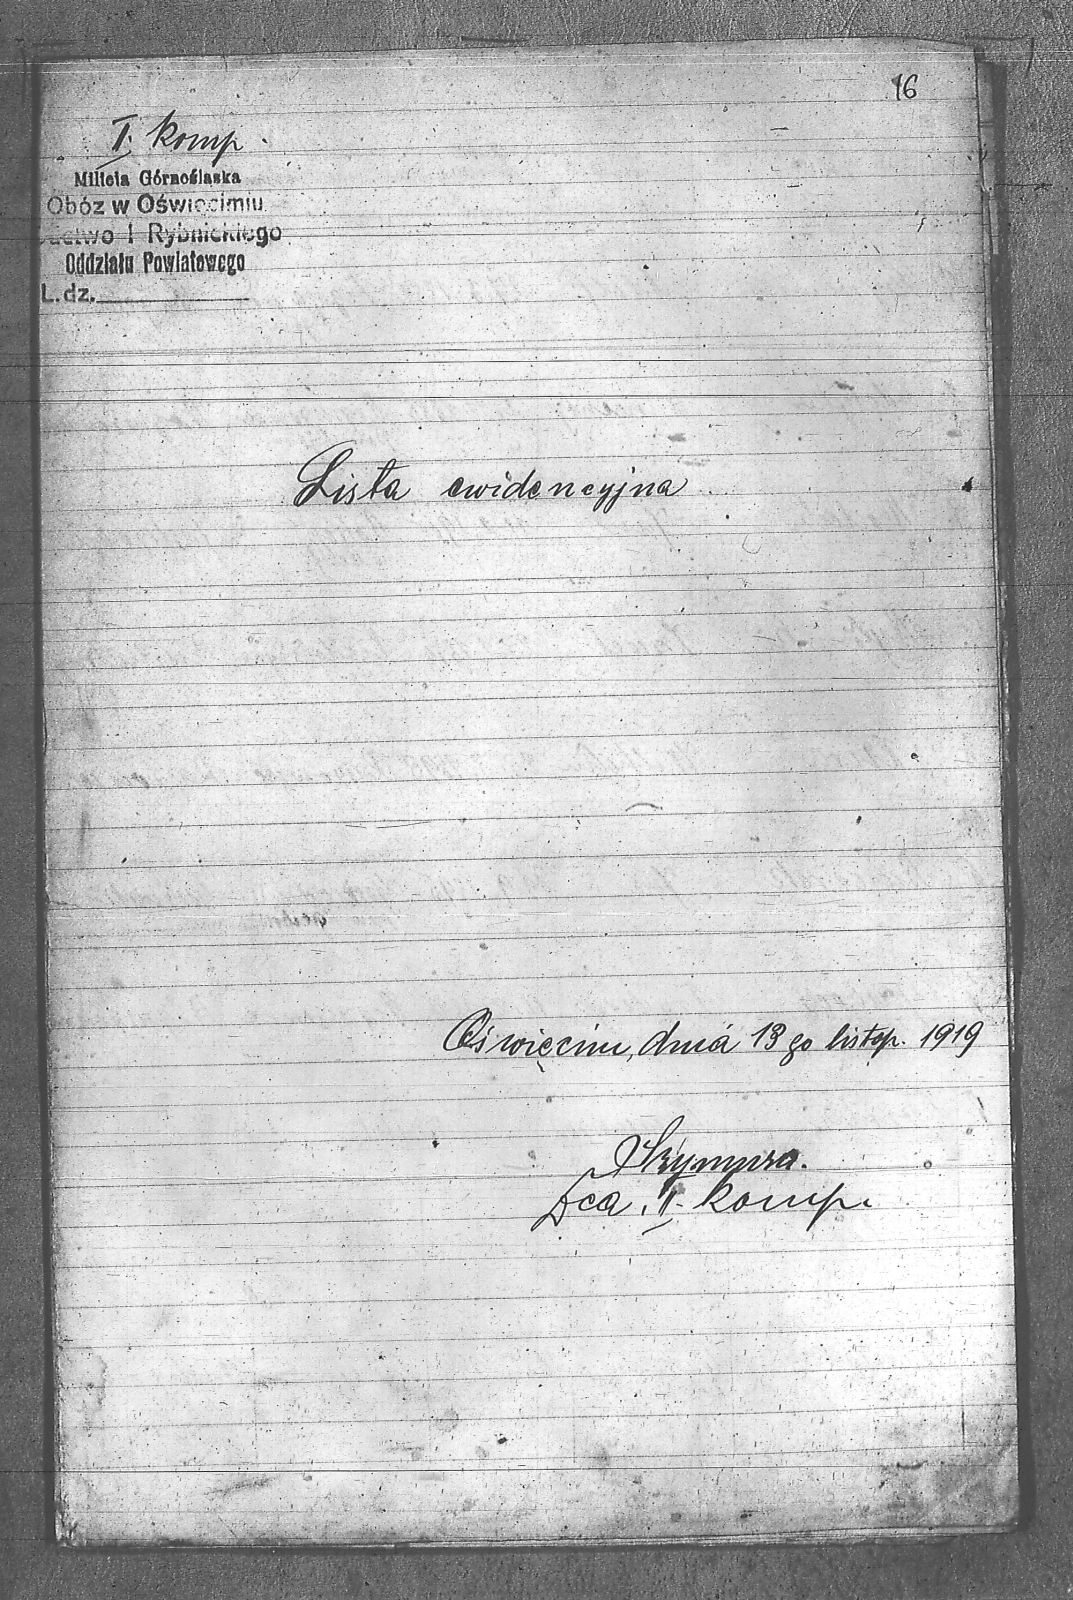 16
II. Komp.
Milicja Górnośląska
Obóz w Oświęcimiu
I Rybnickiego
Oddziału Powiatowego
L. dz.
Lista ewidencyjna
Oświęcim, dnia 13 go listop. 1919
Szymura.
Dca. II. komp.